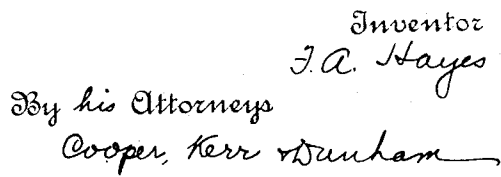 Inventor
F. A. Hayes
By his Attorneys
Cooper, Kerr & Dunham